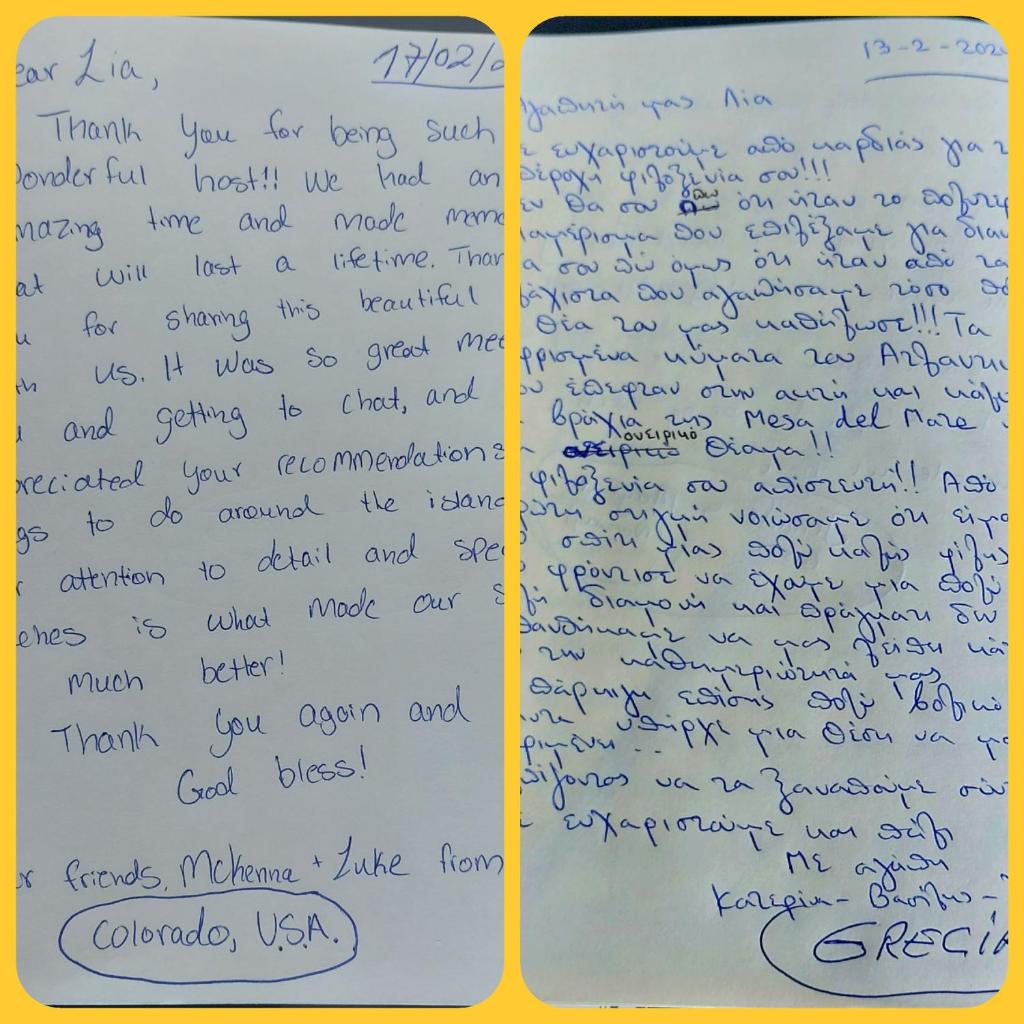 ear Lia,
17/02/
Thank you for being such
onderful host!! We had an
mazing time and made memo
at will last a lifetime. Than
u for sharing this beautiful
th us. It was so great mee
and getting to chat, and
preciated your recommendations
gs to do around the island
r attention to detail and spec
ches is what made our s
much better!
Thank you again and
God bless!
r friends, Mckenna + Luke from
Colorado, U.S.A.
13-2-202
γαπητή μας Λία
ε ευχαριστούμε από καρδιάς για τ
πέροχη φιλοξενία σου!!!
εν θα σου πω ότι ήταν το πολυτε
ιαμέρισμα που επιλέξαμε για διαμ
α σου πω όμως ότι ήταν από τα
λάχιστα που αγαπήσαμε τόσο πο
θέα του μας καθήλωσε!!! Τα
φρισμένα κύματα του Ατλαντικ
ου έπεφταν στην ακτή και κάλυ
βράχια της Mesa del Mare
ονειρικό θέαμα!!
φιλοξενία σου απίστευτη!! Από
ρώτη στιγμή νοιώσαμε ότι είμα
σπίτι μίας πολύ καλής φίλης
φρόντισε να έχουμε μια πολύ
διαμονή και πράγματι δεν
ανθήκαμε να μας λείπει κά
την καθημερινότητά μας
πάρκιγκ επίσης πολύ βολικό
υπήρχε μια θέση να μα
ριμένει...
πίζοντας να τα ξαναπούμε σύν
ε ευχαριστούμε και πάλι
Με αγάπη
Κατερίνα - Βασίλης -
GRECIA